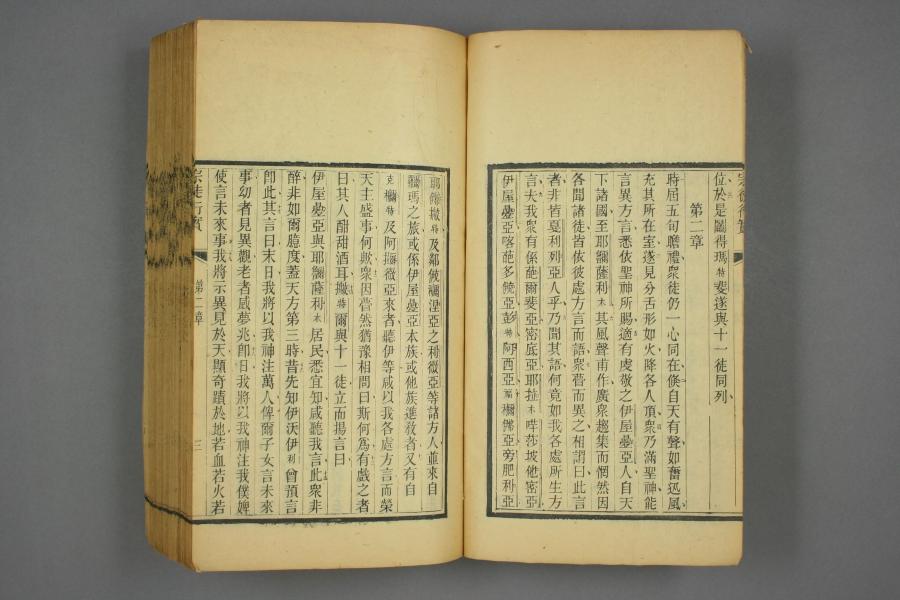 位於是圖得瑪特斐遂與十一徒同列
第二章
時屆五旬瞻禮衆徒仍一心同在倐自天有聲如奮迅風
充其所在室遂見分舌形如火降各人頂衆乃滿聖神能
言異方言悉依聖神所賜適有虔敬之伊屋叠亞人自天
下諸國至耶 薩利木其風聲甫作廣衆趨集而惘然因
各聞諸徒皆依彼處方言而語衆瞢而異之相謂曰此言
者非皆戛利列亞人乎乃聞其語何竟如我各處所生方
言夫我衆有係葩爾斐亞密底亞耶 木 莎坡他密亞
伊屋叠亞喀葩多 亞彭特阿西亞 亞旁肥利亞
及 之利 亞等諸方人並來自
瑪之旅或係伊屋叠亞本族或他族進敎者又有自
克 特及阿 亞來者聽伊等咸以我各處方言而榮
天主盛事何歟衆因瞢然猶豫相問曰斯何爲有戲之者
曰其人酣甜酒耳 特爾與十一徒立而揚言曰
伊屋叠亞與耶 薩利木居民悉宜知咸聽我言此衆非
醉非如爾臆度蓋天方第三時昔先知伊沃伊利曾預言
卽此其言曰末日我將以我神注萬人俾爾子女言未來
事幼者見異觀老者感夢兆卽日我將以我神注我僕婢
使言未來事我將示異見於天顯奇蹟於地若血若火若
宗徒行實
第二章
三